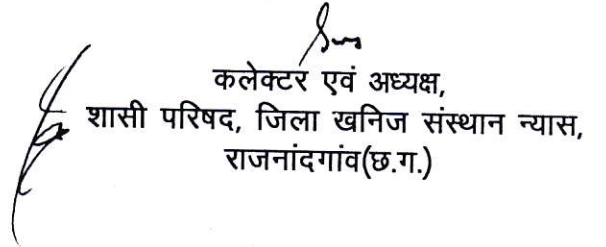 कलेक्टर एवं अध्यक्ष,
शासी परिषद, जिला खनिज संस्थान न्यास,
राजनांदगांव(छ.ग.)